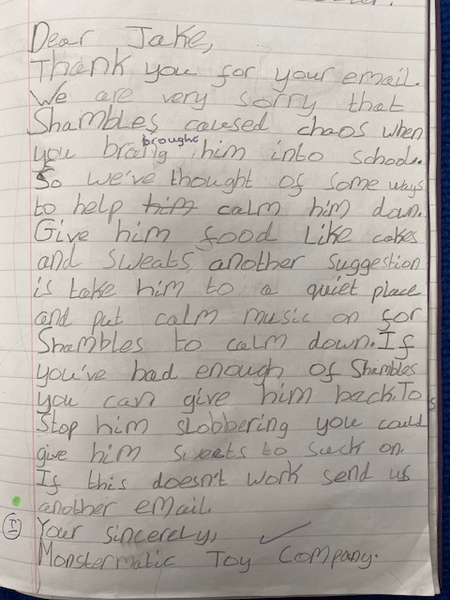 Dear Jake,
Thank you for your email.
We are very sorry that
Shambles caused chaos when
brought
you brang him into school.
So we've thought of some ways
to help him calm him down.
Give him food like cakes
and sweats, another suggestion
is take him to a quiet place
and put calm music on for
Shambles to calm down. If
you've had enough of Shambles
you can give him back. To
Stop him slobbering you could
give him sweets to suck on.
If this doesn't work send us
another email.
Your sincerely,
Monstermatic Toy Company.